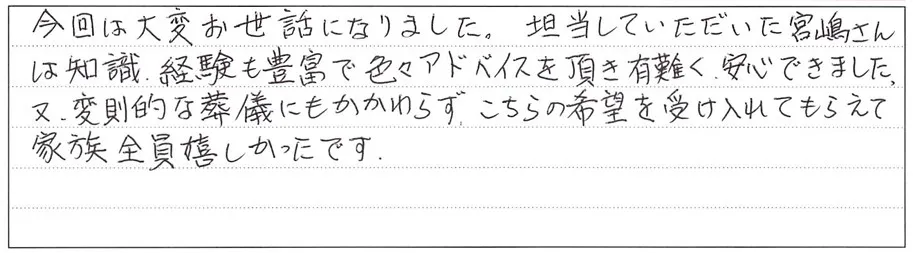 今回は大変お世話になりました。 担当していただいた宮嶋さん
は知識、経験も豊富で色々アドバイスを頂き有難く、安心できました。
又、変則的な葬儀にもかかわらず、こちらの希望を受け入れてもらえて
家族全員嬉しかったです。